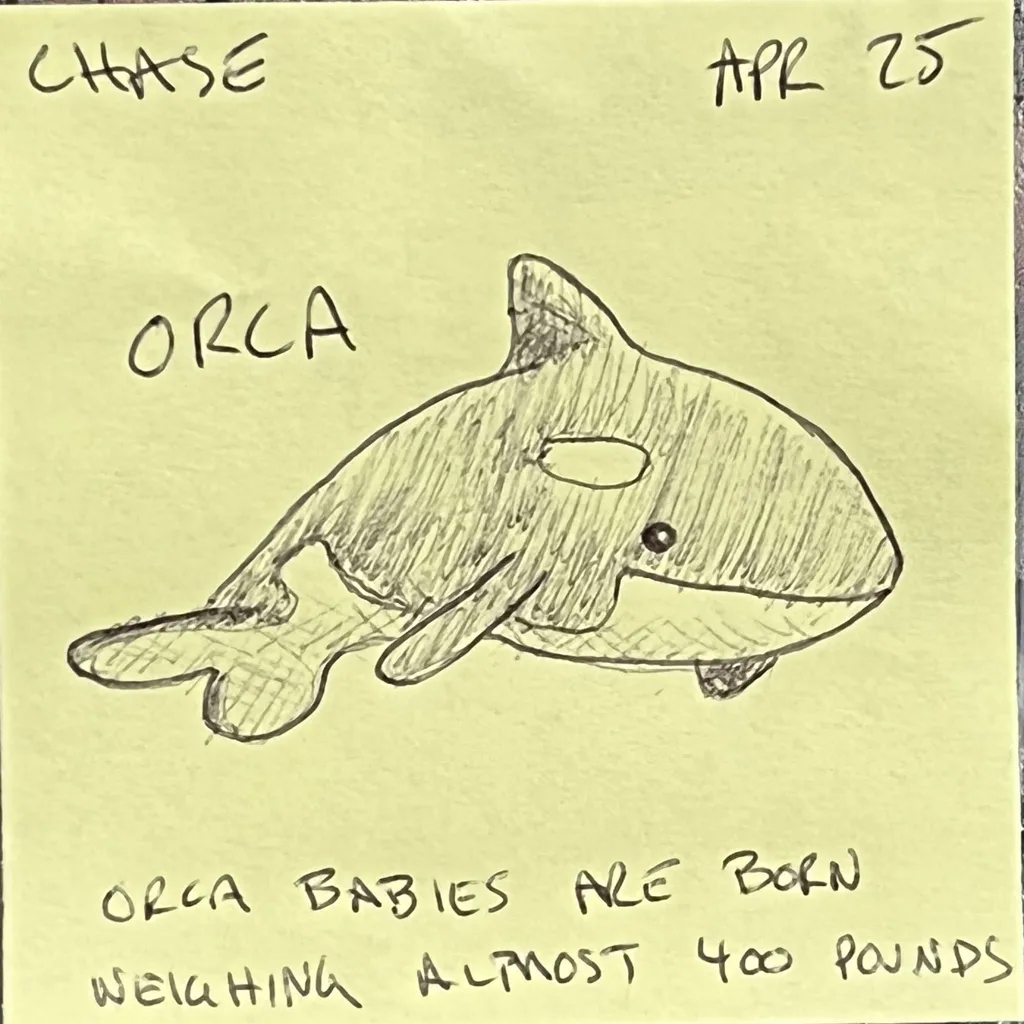 CHASE
APR 25
ORCA
ORCA BABIES ARE BORN
WEIGHING ALMOST 400 POUNDS